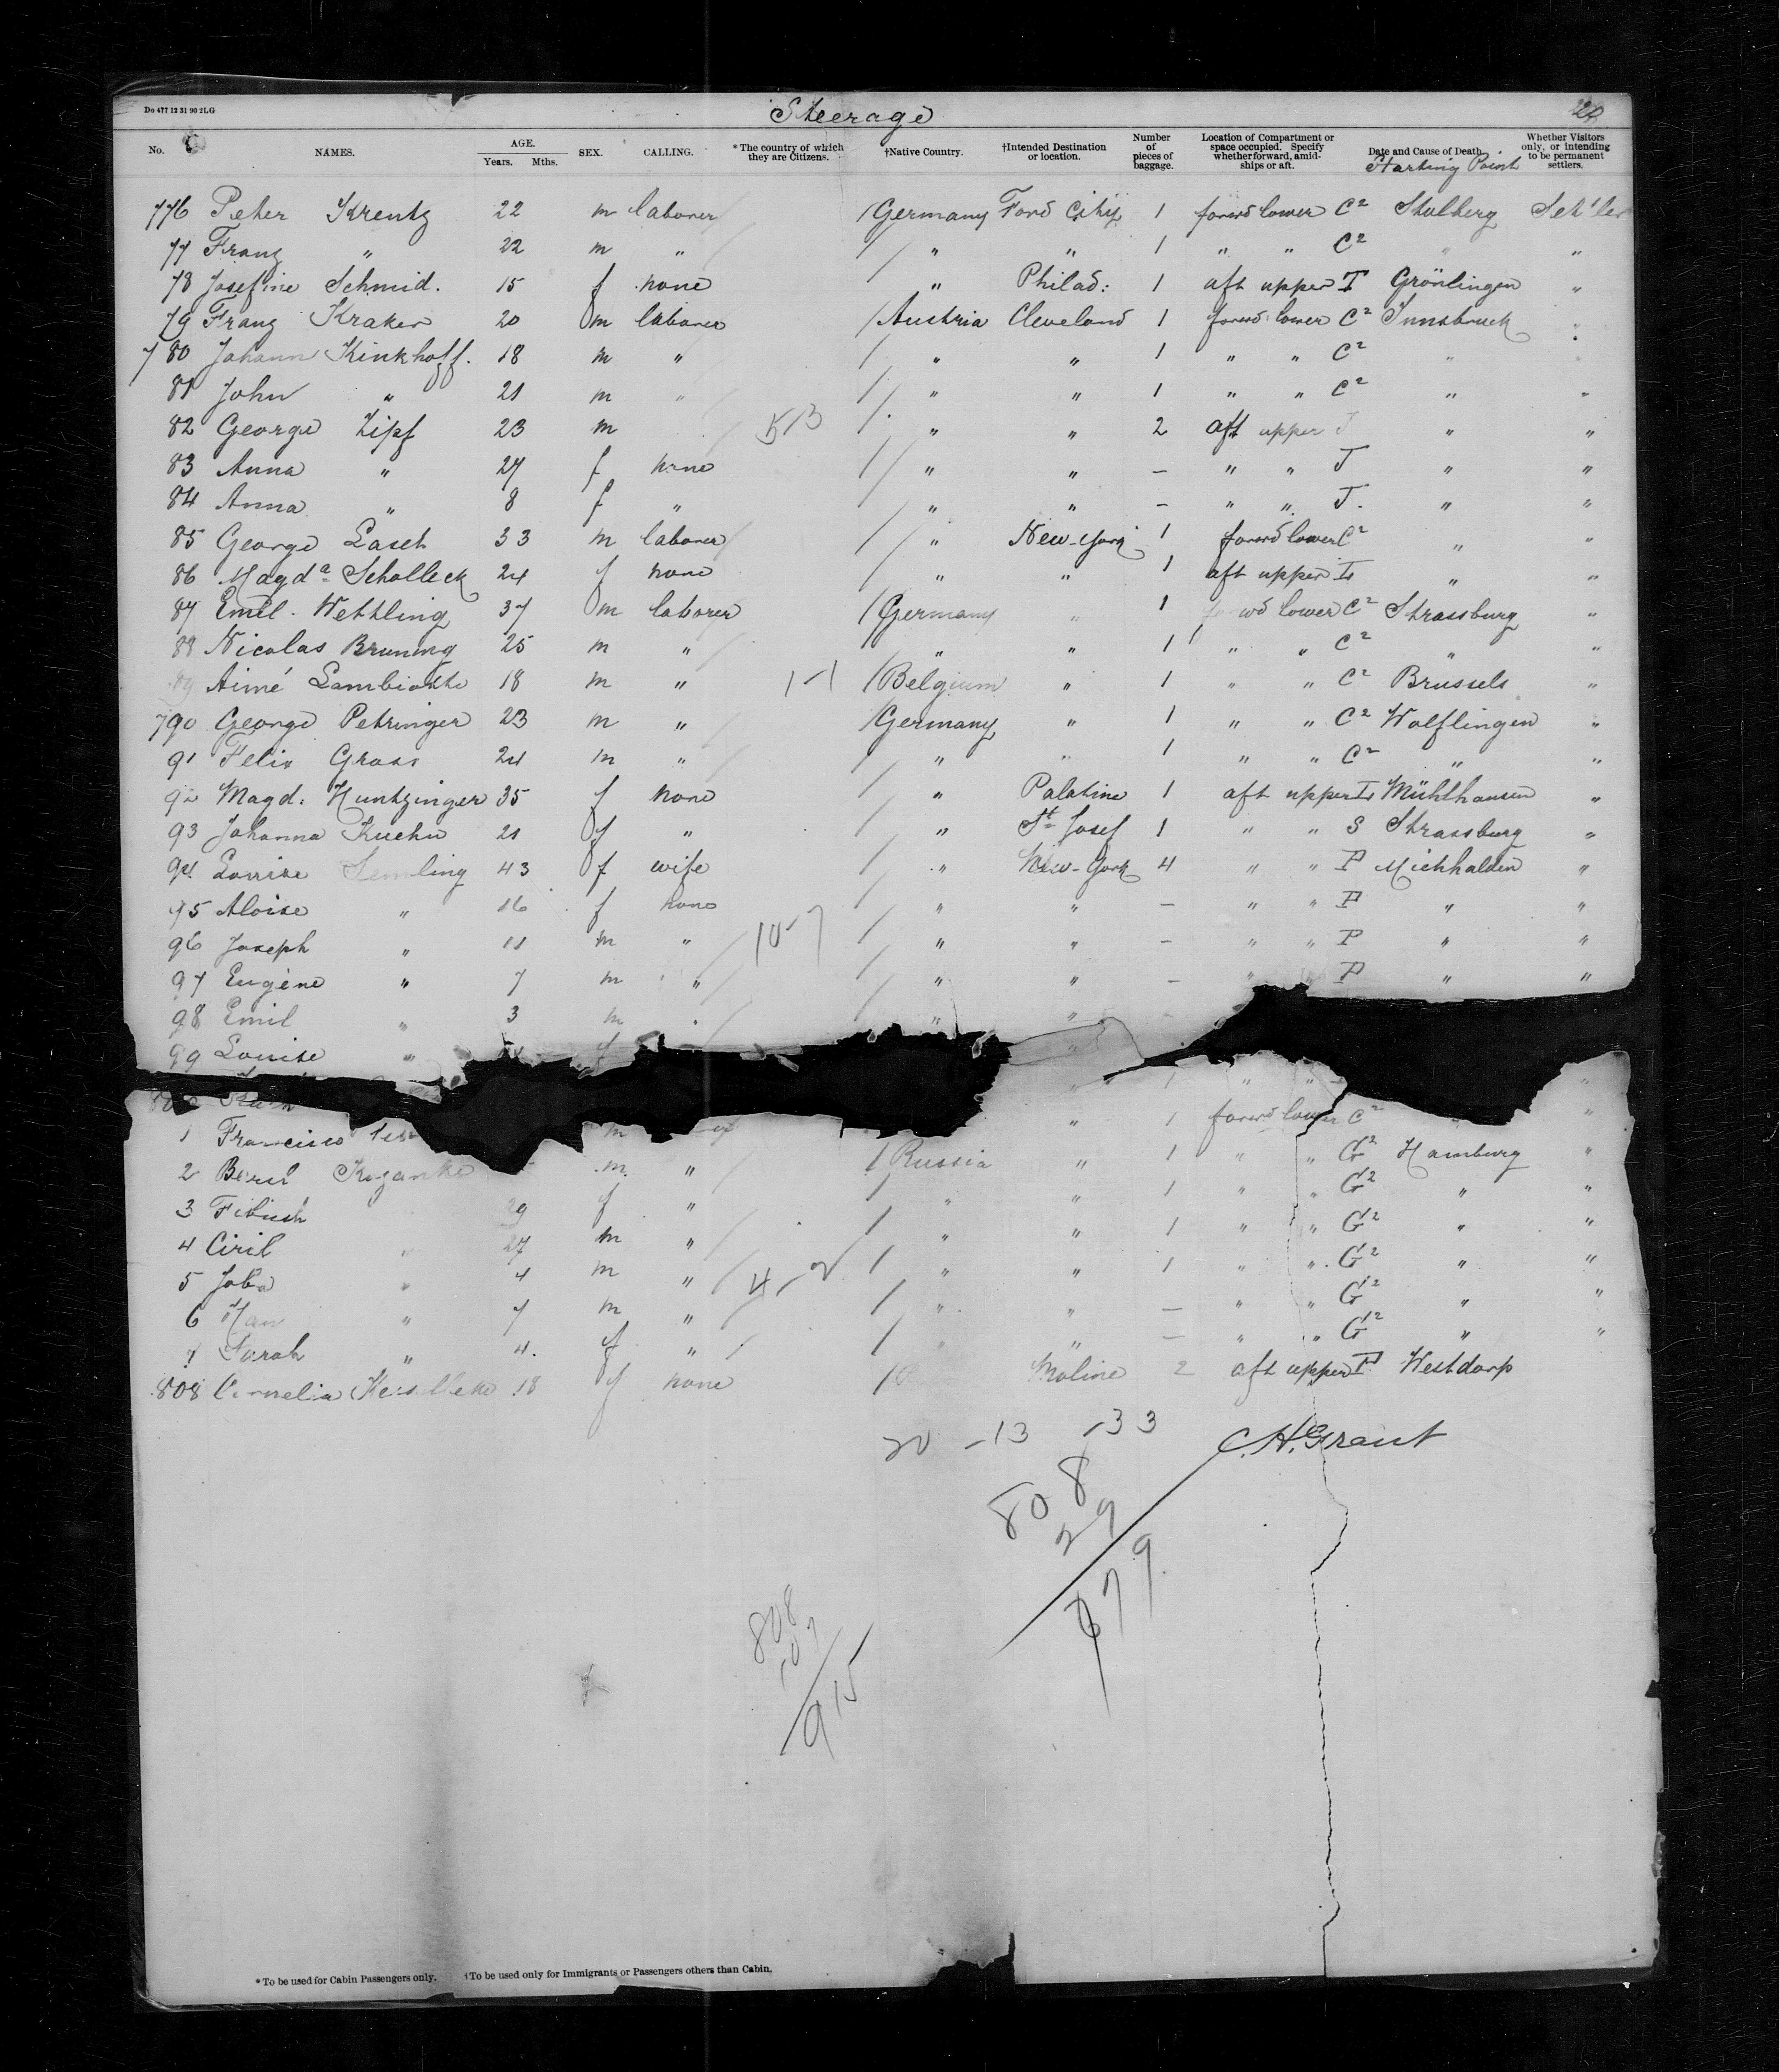 Do 477 12 31 90 2LG
Steerage
No. NAMES. AGE. Years. Mths. SEX. CALLING. *The country of which they are Citizens. †Native Country. †Intended Destination or location. Number of pieces of baggage. Location of Compartment or space occupied. Specify whether forward, amidships or aft. Date and Cause of Death. Starting Point Whether Visitors only, or intending to be permanent settlers.
776 Peter Krentz 22 m laborer / Germany Ford City 1 forwd lower C2 Stolberg Set'ler
77 Franz " 22 m " / " " 1 " " C2 " "
78 Josefine Schmid. 15 f none / " Philad: 1 aft upper T Grönlingen "
79 Franz Kraker 20 m laborer / Austria Cleveland 1 forwd lower C2 Innsbruck "
780 Johann Kinkhoff. 18 m " / " " 1 " " C2 " "
81 John " 21 m " / " " 1 " " C2 " "
82 George Zipf 23 m 5/3 / " " 2 aft upper J " "
83 Anna " 27 f none / " " – " " J " "
84 Anna " 8 f " / " " – " " J. " "
85 George Lasch 33 m laborer / " New-York 1 forwd lower C2 " "
86 Magda Scholleck 24 f none / " " 1 aft upper " "
87 Emil. Wettling 37 m laborer / Germany " 1 forwd lower C2 Strassburg "
88 Nicolas Bruning 25 m " / " " 1 " " C2 " "
89 Aimé Lambiotte 18 m " 1-1 / Belgium " 1 " " C2 Brussels "
790 George Petringer 23 m " / Germany " 1 " " C2 Wolflingen "
91 Felix Gross 24 m " / " " 1 " " C2 " "
92 Magd: Huntzinger 35 f none / " Palatine 1 aft upper Mühlhausen "
93 Johanna Kuehn 21 f " / " St Josef 1 " " S Strassburg "
94 Louise Semling 43 f wife / " New-York 4 " " P Michhalden "
95 Aloise " 16 f none / " " – " " P " "
96 Joseph " 11 m " 10-7 / " " – " " P " "
97 Eugène " 7 m " / " " – " " P " "
98 Emil " 3 m " / " " –
99 Louise " f "
" 1 " " "
1 Francisco m " 1 forwd lower C2 "
2 m. " / Russia " 1 " " G2 Hamburg "
3 29 f " / " " 1 " " G2 " "
4 Ciril " 27 m " / " " 1 " " G2 " "
5 " 4 m " 4-2 / " " 1 " " G2 " "
6 " 7 m " / " " – " " G2 " "
7 Sarah " 4. f " / " " – " " G2 " "
808 Cornelia 18 f none / Moline 2 aft upper P Westdorp
20 -13 -33 C. H. Grant
808
29
779
808
107
915
*To be used for Cabin Passengers only. †To be used only for Immigrants or Passengers others than Cabin.